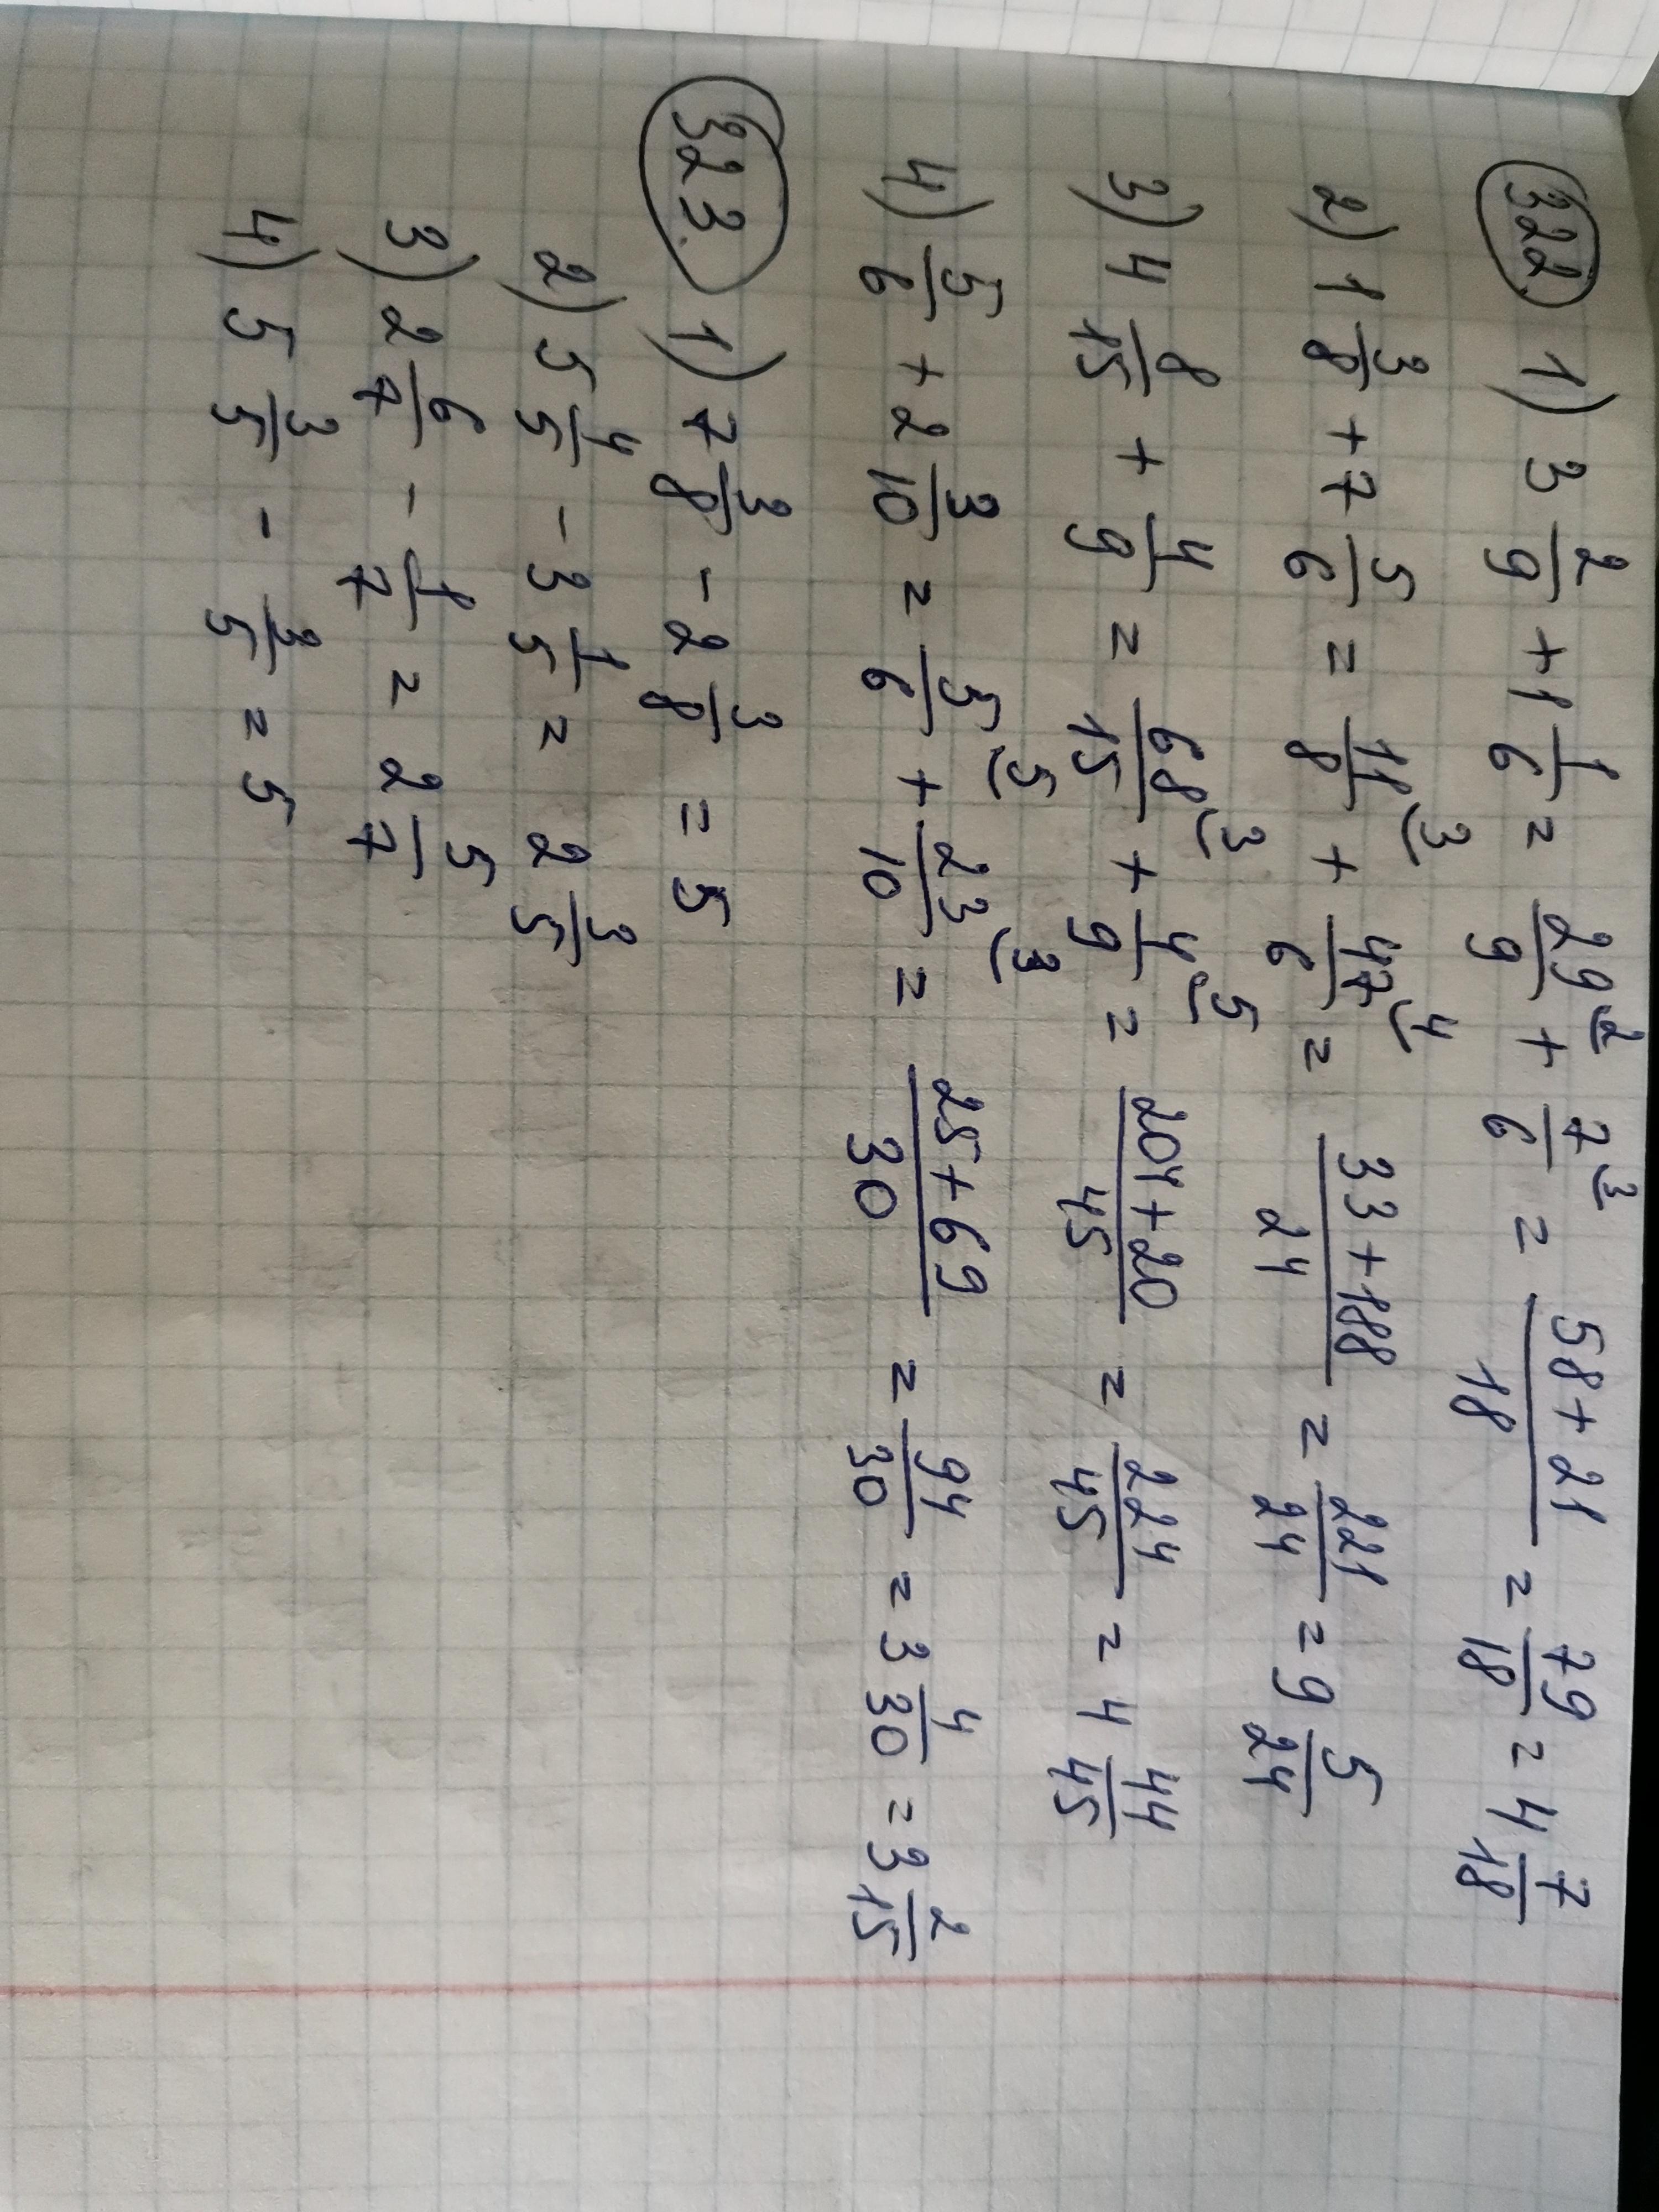 322 1) 3 2/9 + 1 1/6 = 29/9 ⁽² + 7/6 ⁽³ = (58+21)/18 = 79/18 = 4 7/18
2) 1 3/8 + 7 5/6 = 11/8 ⁽³ + 47/6 ⁽⁴ = (33+188)/24 = 221/24 = 9 5/24
3) 4 8/15 + 4/9 = 68/15 ⁽³ + 4/9 ⁽⁵ = (204+20)/45 = 224/45 = 4 44/45
4) 5/6 + 2 3/10 = 5/6 ⁽⁵ + 23/10 ⁽³ = (25+69)/30 = 94/30 = 3 4/30 = 3 2/15
323. 1) 7 3/8 - 2 3/8 = 5
2) 5 4/5 - 3 1/5 = 2 3/5
3) 2 6/7 - 1/7 = 2 5/7
4) 5 3/5 - 3/5 = 5